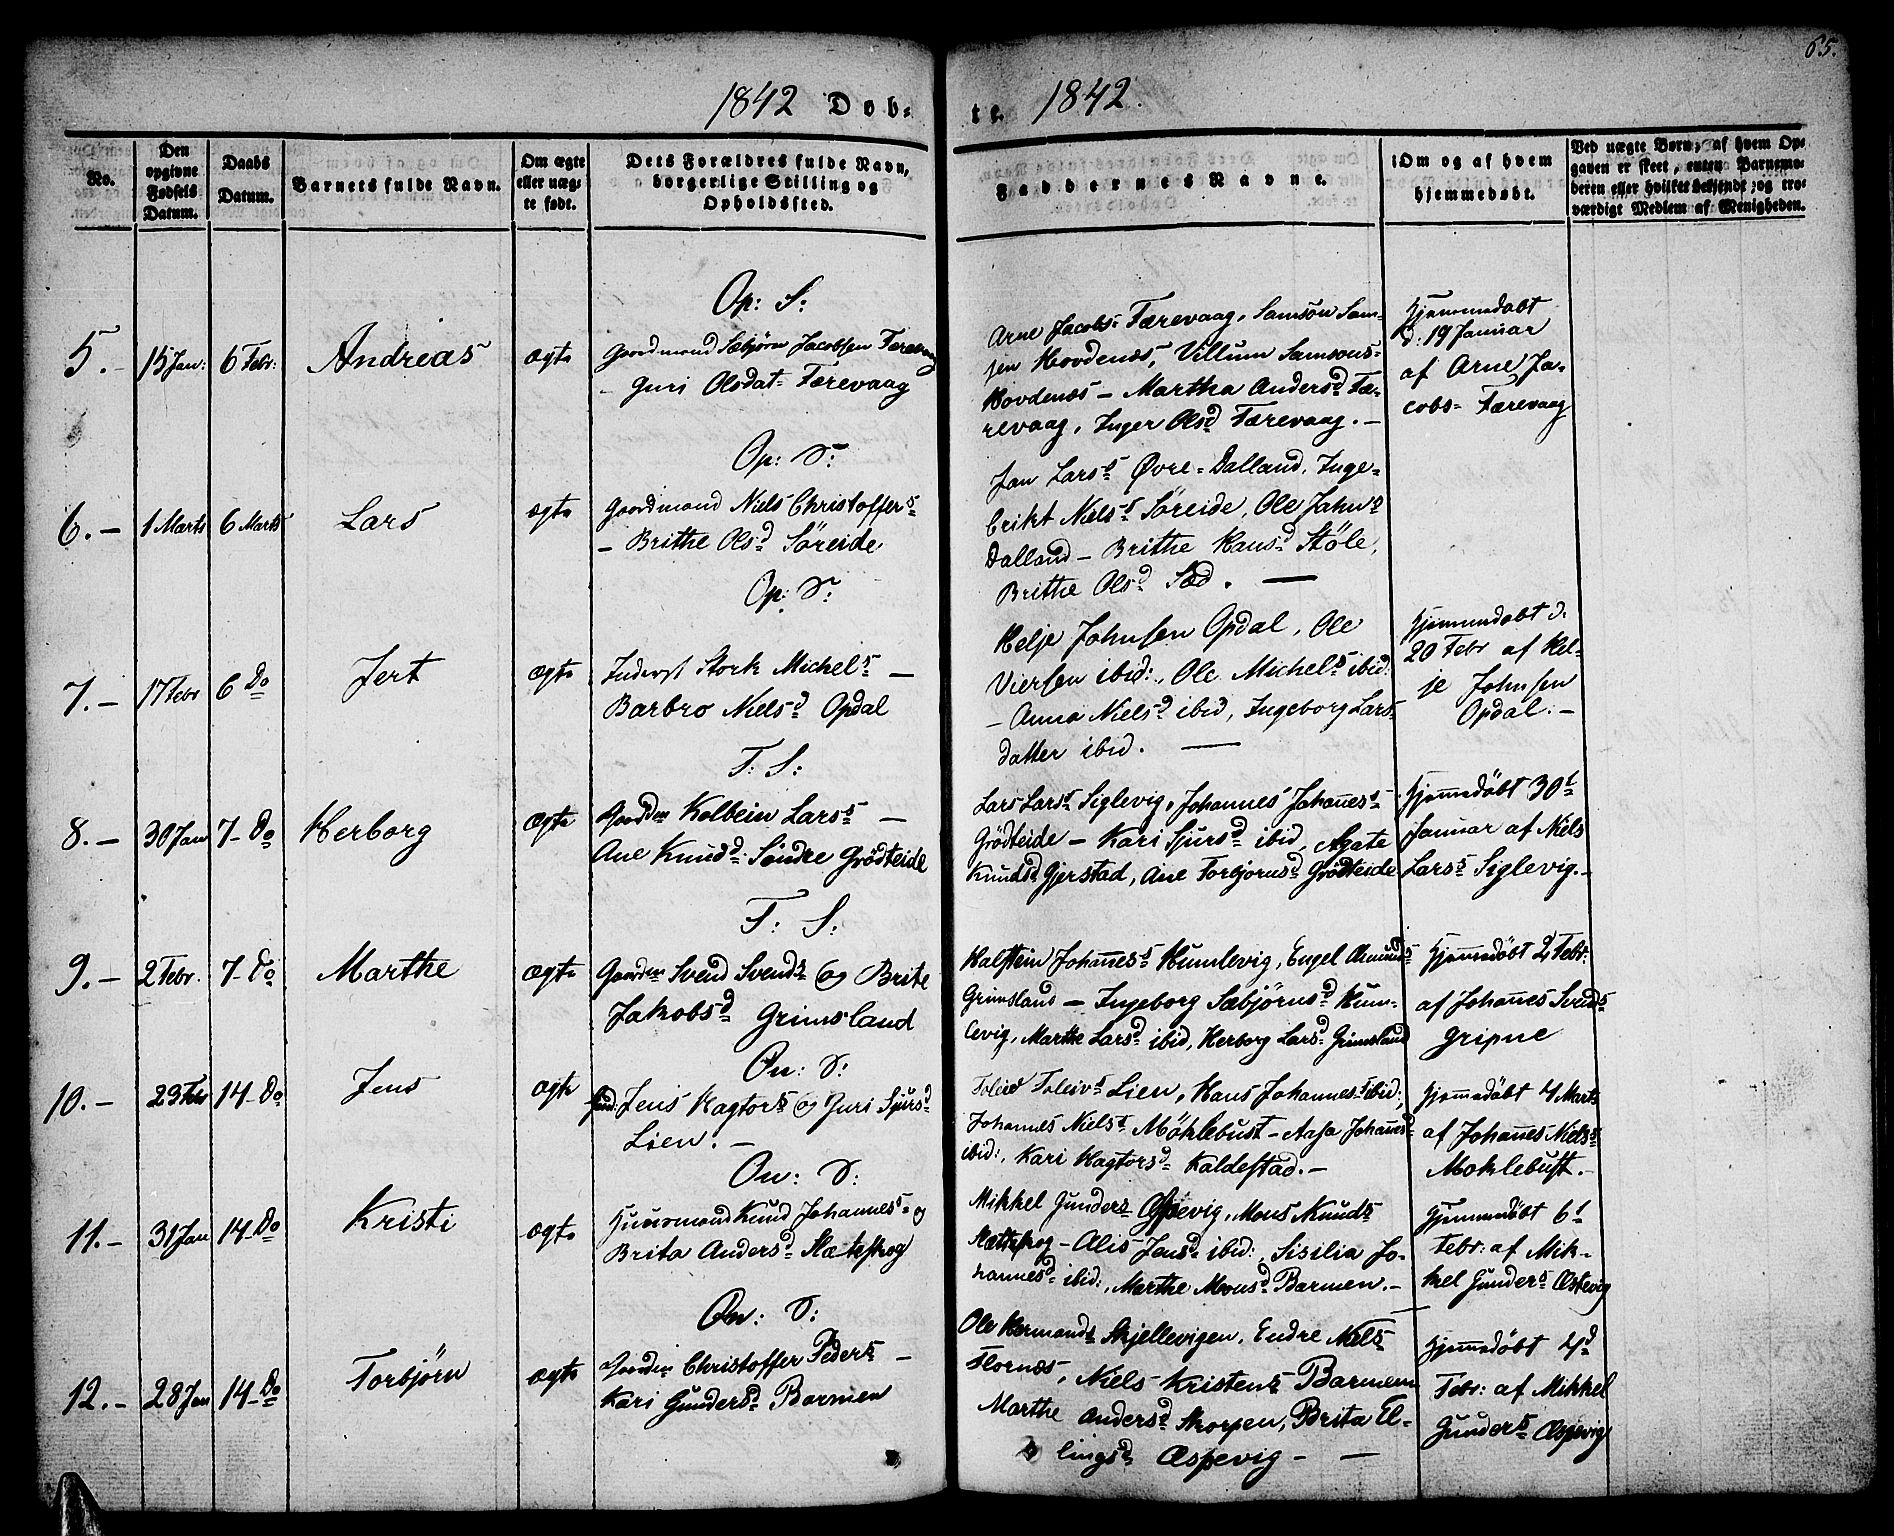 65.
1842 Døb-
te. 1842.
No.
Den opgivne Fødsels Datum.
Daabs Datum.
Barnets fulde Navn.
Om ægte eller uægte født.
Dets Forældres fulde Navn, borgerlige Stilling og Opholdssted.
Faddernes Navne.
Om og af hvem hjemmedøbt.
Ved uægte Børn, af hvem Opgaven er skeet, enten Barnemoderen eller hvilket bekjendt og troværdigt Medlem af Menigheden.
Op: S:
5.- 15 Jan: 6 Febr: Andreas ægte
Gaardmand Sæbjørn Jacobsen Færevaag
- Guri Olsdat= Færevaag
Arne Jacobs= Færevaag, Samson Sam-
sen Hovdenæs, Villum Samsons=
Hovdenæs - Martha Andersd Fæ-
revaag, Inger Olsd Færevaag. -
Hjemmedøbt
d: 19 Januar
af Arne Ja-
cobs= Færevaag
Op: S:
6.- 1 Marts 6 Marts Lars ægte
Gaardmand Niels Christoffers
- Brithe Olsd Søreide
Jan Larss Øvre=Dalland, Inge-
brikt Nielss Søreide, Ole Jahns
Dalland - Brithe Hansd Støle,
Brithe Olsd Sæd. —
Op: S:
7.- 17 Febr 6 Do Jert ægte
Inderst Stork Michels -
Barbro Nielsd Opdal
Helje Johnsen Opdal, Ole
Viersen ibid:, Ole Michels ibid:
- Anna Nielsd ibid, Ingeborg Lars-
datter ibid. —
Hjemmedøbt d:
20 Febr af Hel-
je Johnsen
Opdal. -
F: S:
8.- 30 Jan 7- Do Herborg ægte
Gaardm Kolbein Larss -
Ane Knudsd: Søndre Grødteide
Lars Larss Siglevig, Johannes Johaness
Grødteide - Kari Sjursd ibid, Agate
Knudsd Gjerstad, Ane Torbjørnsd Grødteide
Hjemmedøbt 30t
Januar af Niels
Larss Siglevig. -
F: S:
9.- 2 Febr. 7- Do Marthe ægte
Gaardm Svend Svends og Brite
Jakobsd Grimsland
Halstein Johaness Humlevig, Engel Asmunds
Grimsland - Ingeborg Sæbjørnsd Hum-
levig, Marthe Larsd ibid, Herborg Larsd Grimsland
Hjemmedøbt 2 Febr:
af Johanes Svends
Gripne
On: S:
10.- 23 Febr 14- Do Jens ægte
Jens Hagtors og Guri Sjursd
Lien. -
Toleiv Toleivs Lien, Hans Johannes ibid:,
Johannes Niels Møklebust - Aasa Johanesd
ibid:, Kari Hagtorsd Kaldestad. -
Hjemmedøbt 4 Marts
af Johanes Nielss
Moklebust. -
On: S:
11.- 31 Jan 14- Do Kristi ægte
Huusmand Knud Johanness og
Brita Andersd Slætteskog
Mikkel Gunders Æspevig, Mons Knuds
Slætteskog - Alis Jensd ibid:, Sisilia Jo-
hannesd ibid:, Marthe Monsd Barmen. -
Hjemmedøbt 6t
Febr: af Mik-
kel Gunders Æspevig
On: S:
12.- 28 Jan 14- Do Torbjörn ægte
Gaardm Christoffer Peders -
Kari Gundersd Barmen
Ole Hermands Skjellevigen, Endre Niels
Flornæs, Niels Kristens Barmen
Marthe Andersd Skorpen, Brita El-
lingsd Æspevig - -
Hjemmedøbt 4d
Febr: af Mikkel
Gunders Æspevig